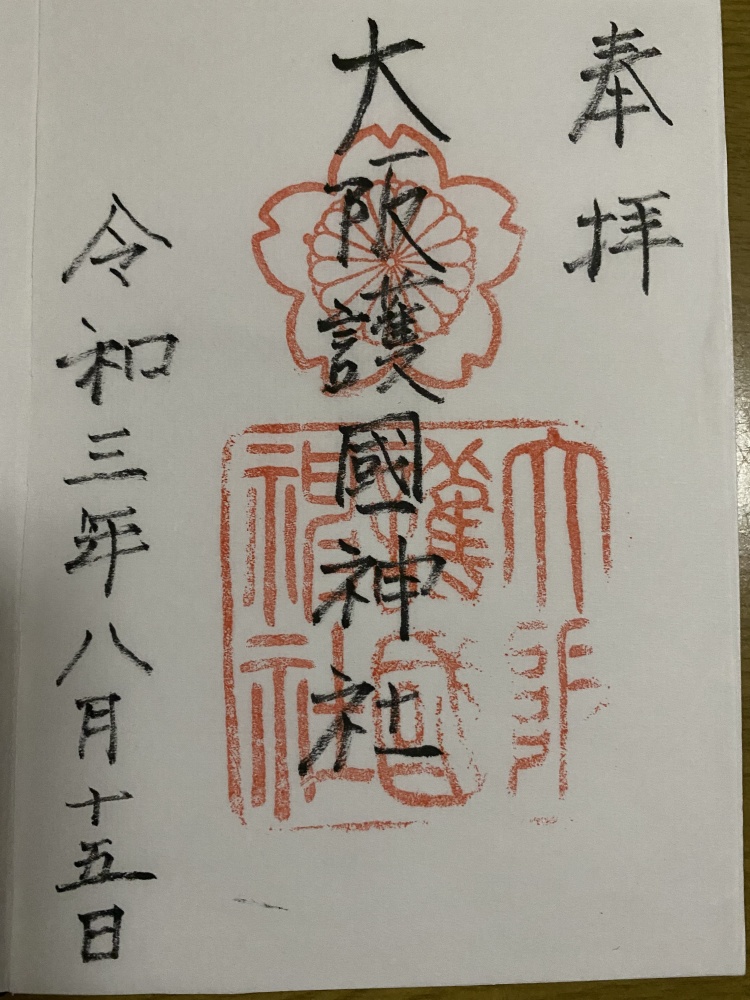 奉拝
大阪護國神社
大阪護國神社
令和三年八月十五日